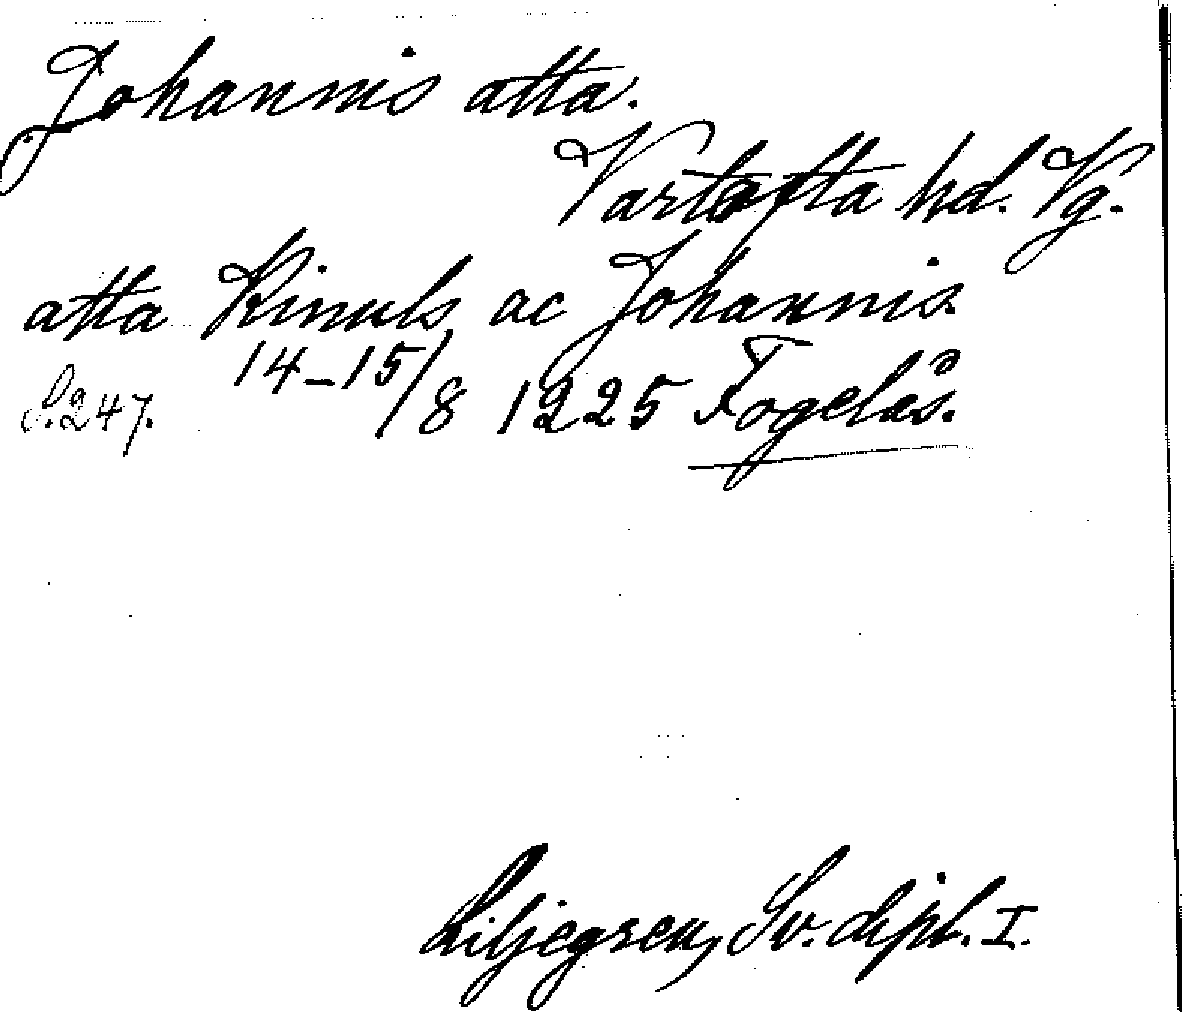 Johannis atta.
Vartofta hd. Vg.
atta Rinuls ac Johannis.
S. 247. 14-15/8 1225 Fogelås.
Liljegren, Sv. dipl. I.